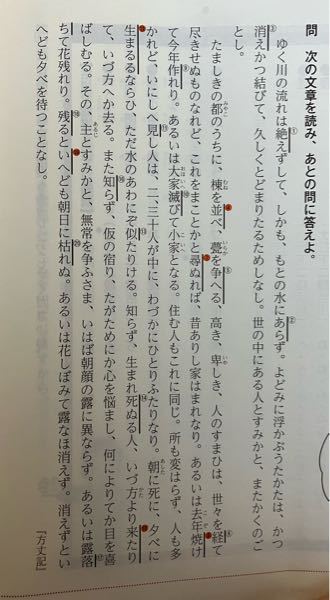 問　次の文章を読み、あとの問に答えよ。
ゆく川の流れは絶えずして、しかも、もとの水にあらず。よどみに浮かぶうたかたは、かつ
消えかつ結びて、久しくとどまりたるためしなし。世の中にある人とすみかと、またかくのご
とし。
たましきの都のうちに、棟を並べ、甍を争へる、高き、卑しき、人のすまひは、世々を経て
尽きせぬものなれど、これをまことかと尋ぬれば、昔ありし家はまれなり。あるいは去年焼け
て今年作れり。あるいは大家滅びて小家となる。住む人もこれに同じ。所も変はらず、人も多
かれど、いにしへ見し人は、二、三十人が中に、わづかにひとりふたりなり。朝に死に、夕べに
生まるるならひ、ただ水のあわにぞ似たりける。知らず、生まれ死ぬる人、いづ方より来たり
て、いづ方へか去る。また知らず、仮の宿り、たがためにか心を悩まし、何によりてか目を喜
ばしむる。その、主とすみかと、無常を争ふさま、いはば朝顔の露に異ならず。あるいは露落
ちて花残れり。残るといへども朝日に枯れぬ。あるいは花しぼみて露なほ消えず。消えずとい
へども夕べを待つことなし。
『方丈記』